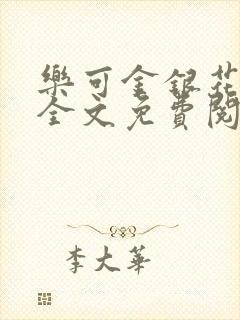 樂可金銀花
全文免費閱
李大華